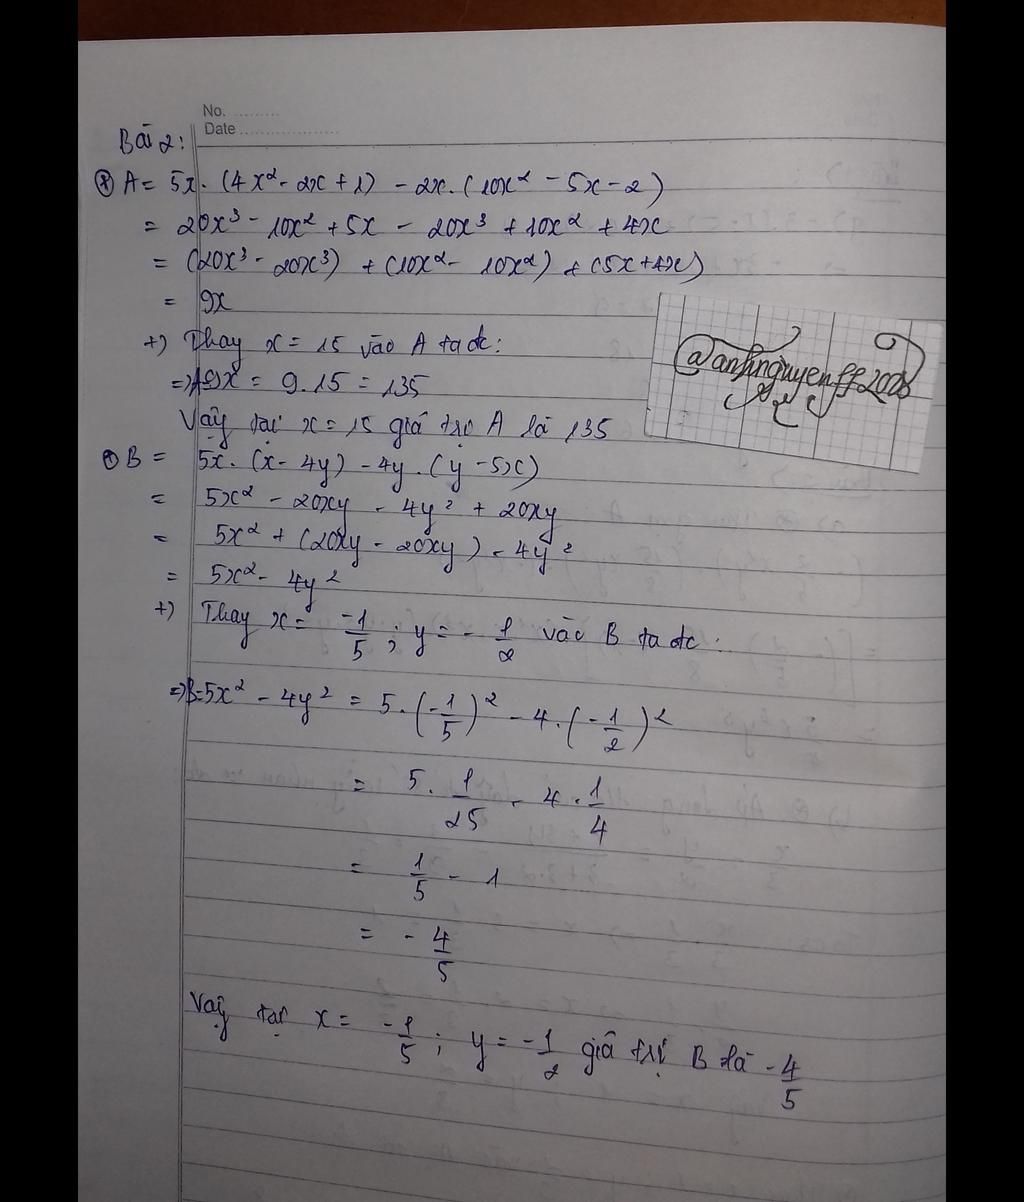 No. ..........
Date ....................
Bài 2:
* A = 5x . (4x² - 2x + 1) - 2x . (10x² - 5x - 2)
= 20x³ - 10x² + 5x - 20x³ + 10x² + 4x
= (20x³ - 20x³) + (10x² - 10x²) + (5x + 4x)
= 9x
+) Thay x = 15 vào A ta đc:
=> A = 9x = 9 . 15 = 135
Vậy tại x = 15 giá trị A là 135
@anhnguyenff2008
* B = 5x . (x - 4y) - 4y . (y - 5x)
= 5x² - 20xy - 4y² + 20xy
= 5x² + (20xy - 20xy) - 4y²
= 5x² - 4y²
+) Thay x = -1/5 ; y = -1/2 vào B ta đc:
=> B = 5x² - 4y² = 5 . (-1/5)² - 4 . (-1/2)²
= 5 . 1/25 - 4 . 1/4
= 1/5 - 1
= -4/5
Vậy tại x = -1/5 ; y = -1/2 giá trị B là -4/5